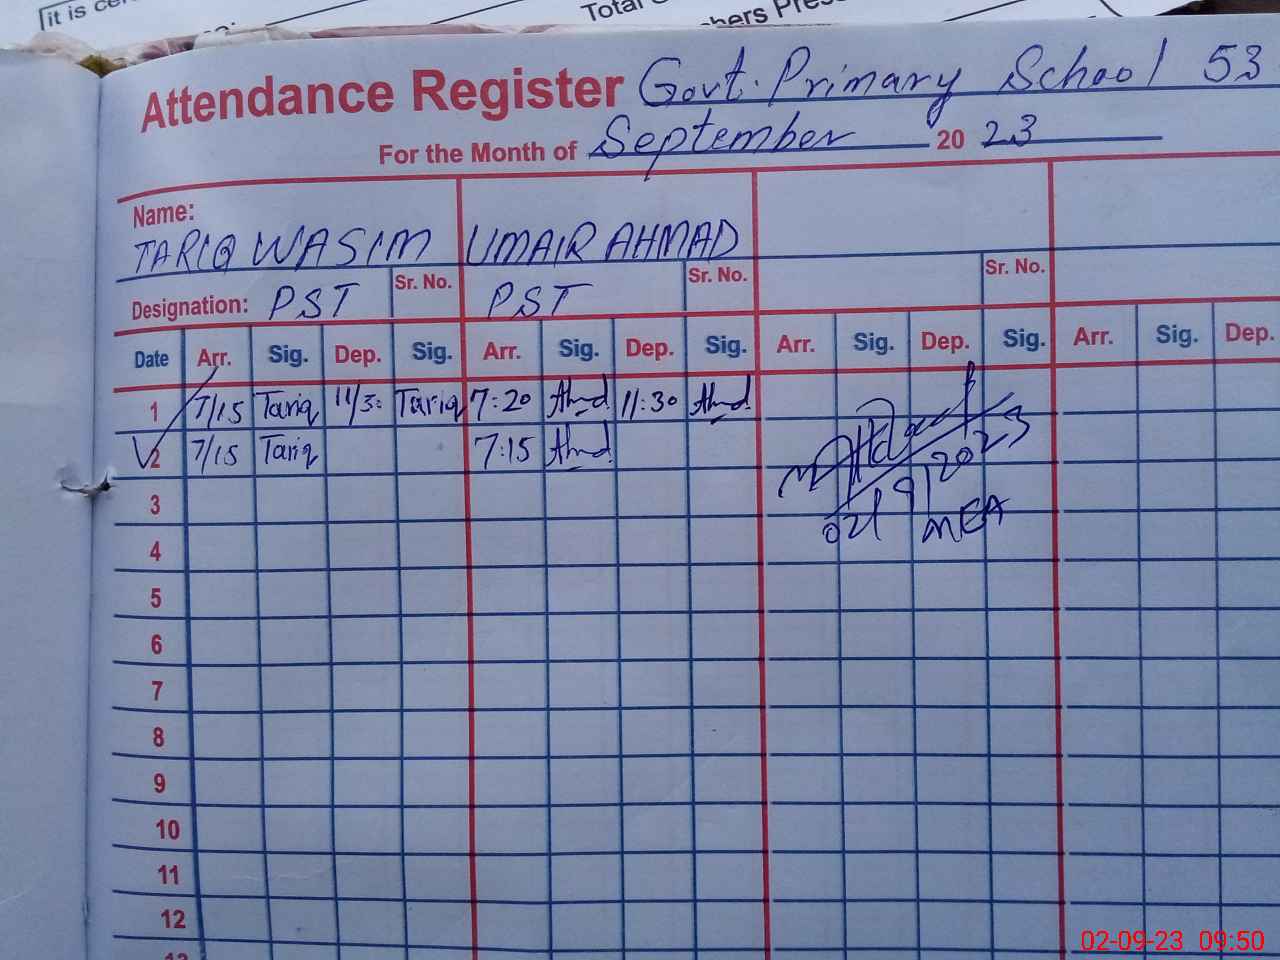 it is
Total
bers Pres
Attendance Register Govt. Primary School 53
For the Month of September 20 23
Name:
TARIQ WASIM UMAIR AHMAD
Sr. No. Sr. No. Sr. No.
Designation: PST PST
Date Arr. Sig. Dep. Sig. Arr. Sig. Dep. Sig. Arr. Sig. Dep. Sig. Arr. Sig. Dep.
1 7/15 Tariq 11/30 Tariq 7:20 Ahmd 11:30 Ahmd
2 7/15 Tariq 7:15 Ahmd
02/9/2023
MEA
3
4
5
6
7
8
9
10
11
12
13
02-09-23 09:50